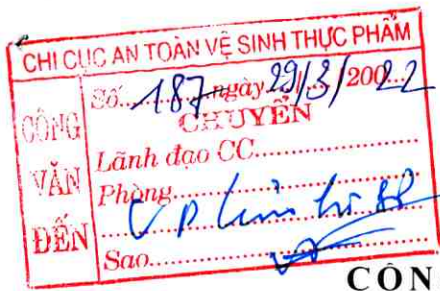 CHI CỤC AN TOÀN VỆ SINH THỰC PHẨM
CÔNG VĂN ĐẾN
Số.....187.....ngày 29/3/200..22
CHUYỂN
Lãnh đạo CC..................
Phòng..................
VP
Sao..................
CÔN